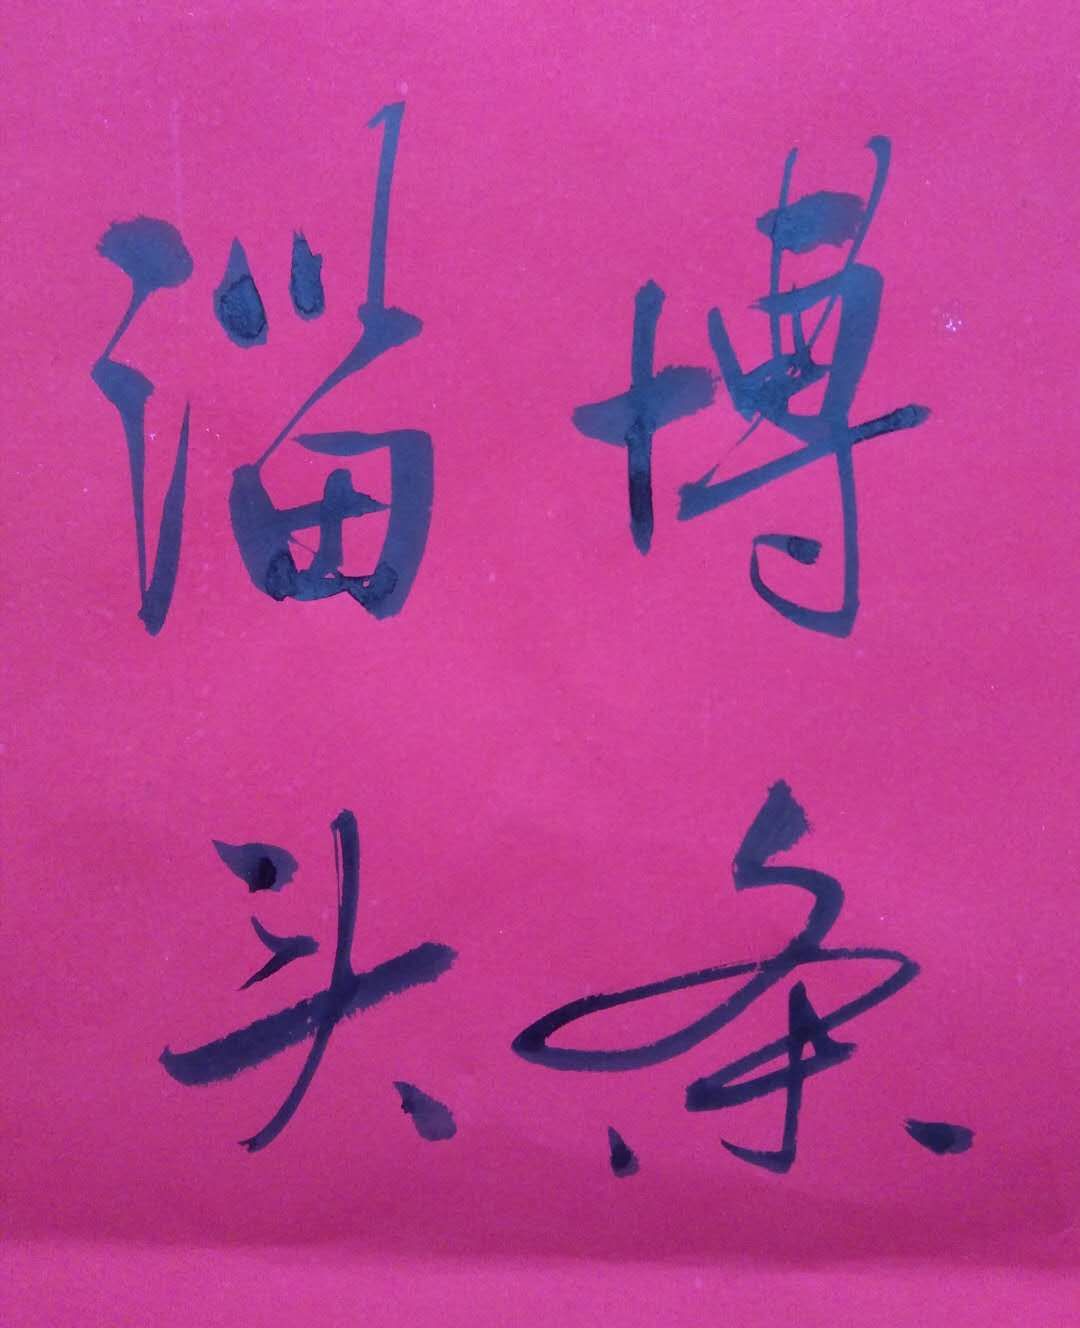 淄博
头条